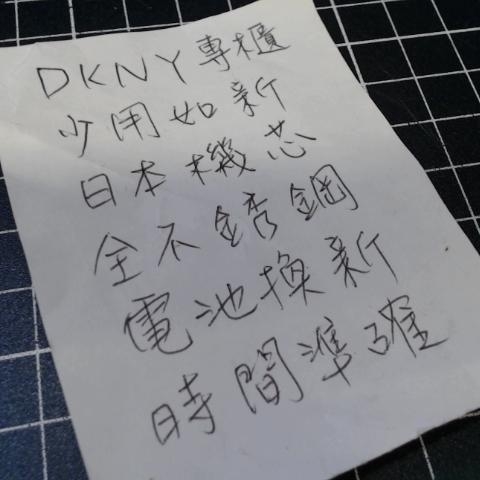 DKNY專櫃
少用如新
日本機芯
全不銹鋼
電池換新
時間準確